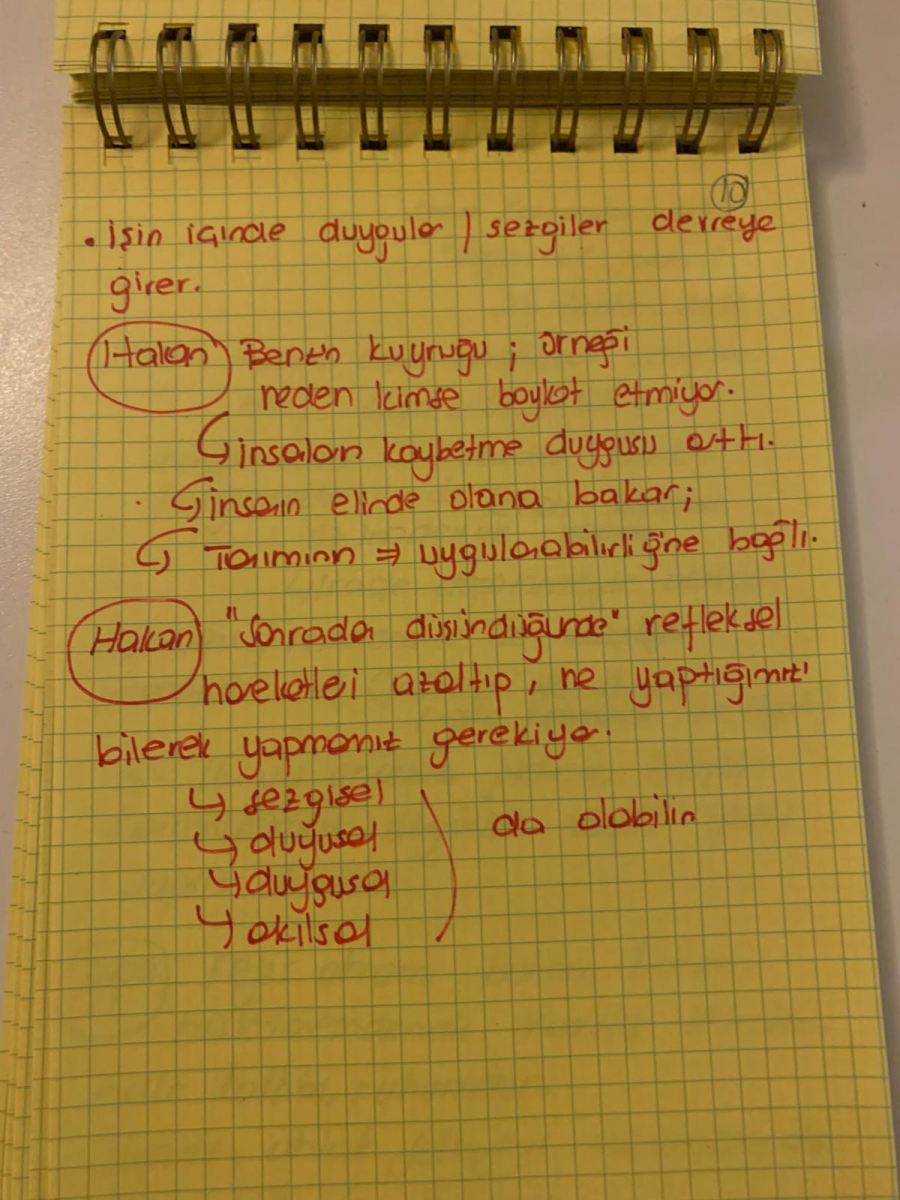 10
• İşin içinde duygular / sezgiler devreye
girer.
Hakan Benzin kuyruğu ; örneği
neden kimse boykot etmiyor.
↳ insaların kaybetme duygusu arttı.
↳ insanın elinde olana bakar;
↳ Tanımının ⇒ uygulanabilirliğine bağlı.
Hakan "Sonradan düşündüğünde" refleksel
hareketleri azaltıp, ne yaptığımızı
bilerek yapmamız gerekiyor.
↳ sezgisel
↳ duyusal
↳ duygusal
↳ akılsal
da olabilir